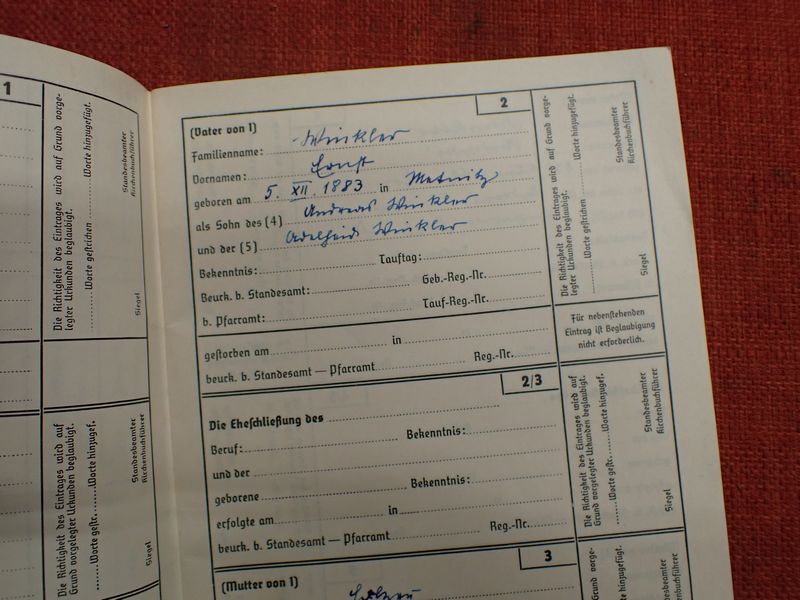 1
Die Richtigkeit des Eintrages wird auf Grund vorge-
legter Urkunden beglaubigt.
Worte gestrichen Worte hinzugefügt.
Standesbeamter
Kirchenbuchführer
Siegel
Die Richtigkeit des Eintrages wird auf
Grund vorgelegter Urkunden beglaubigt.
Worte gestr. Worte hinzugef.
Standesbeamter
Kirchenbuchführer
Siegel
2
(Vater von 1)
Familienname: Winkler
Vornamen: Ernst
geboren am 5. XII. 1883 in Metnitz
als Sohn des (4) Andreas Winkler
und der (5) Adelheid Winkler
Bekenntnis: Tauftag:
Beurk. b. Standesamt: Geb.-Reg.-Nr.
b. Pfarramt: Tauf-Reg.-Nr.
gestorben am in
beurk. b. Standesamt — Pfarramt Reg.-Nr.
Die Richtigkeit des Eintrages wird auf Grund vorge-
legter Urkunden beglaubigt.
Worte gestrichen Worte hinzugefügt.
Standesbeamter
Kirchenbuchführer
Siegel
Für nebenstehenden
Eintrag ist Beglaubigung
nicht erforderlich.
2/3
Die Eheschließung des
Beruf: Bekenntnis:
und der
geborene Bekenntnis:
erfolgte am in
beurk. b. Standesamt — Pfarramt Reg.-Nr.
Die Richtigkeit des Eintrages wird auf
Grund vorgelegter Urkunden beglaubigt.
Worte gestr. Worte hinzugef.
Standesbeamter
Kirchenbuchführer
Siegel
3
(Mutter von 1)
Grund vorge-
hinzugefügt.
Standesbeamter
Kirchenbuchführer